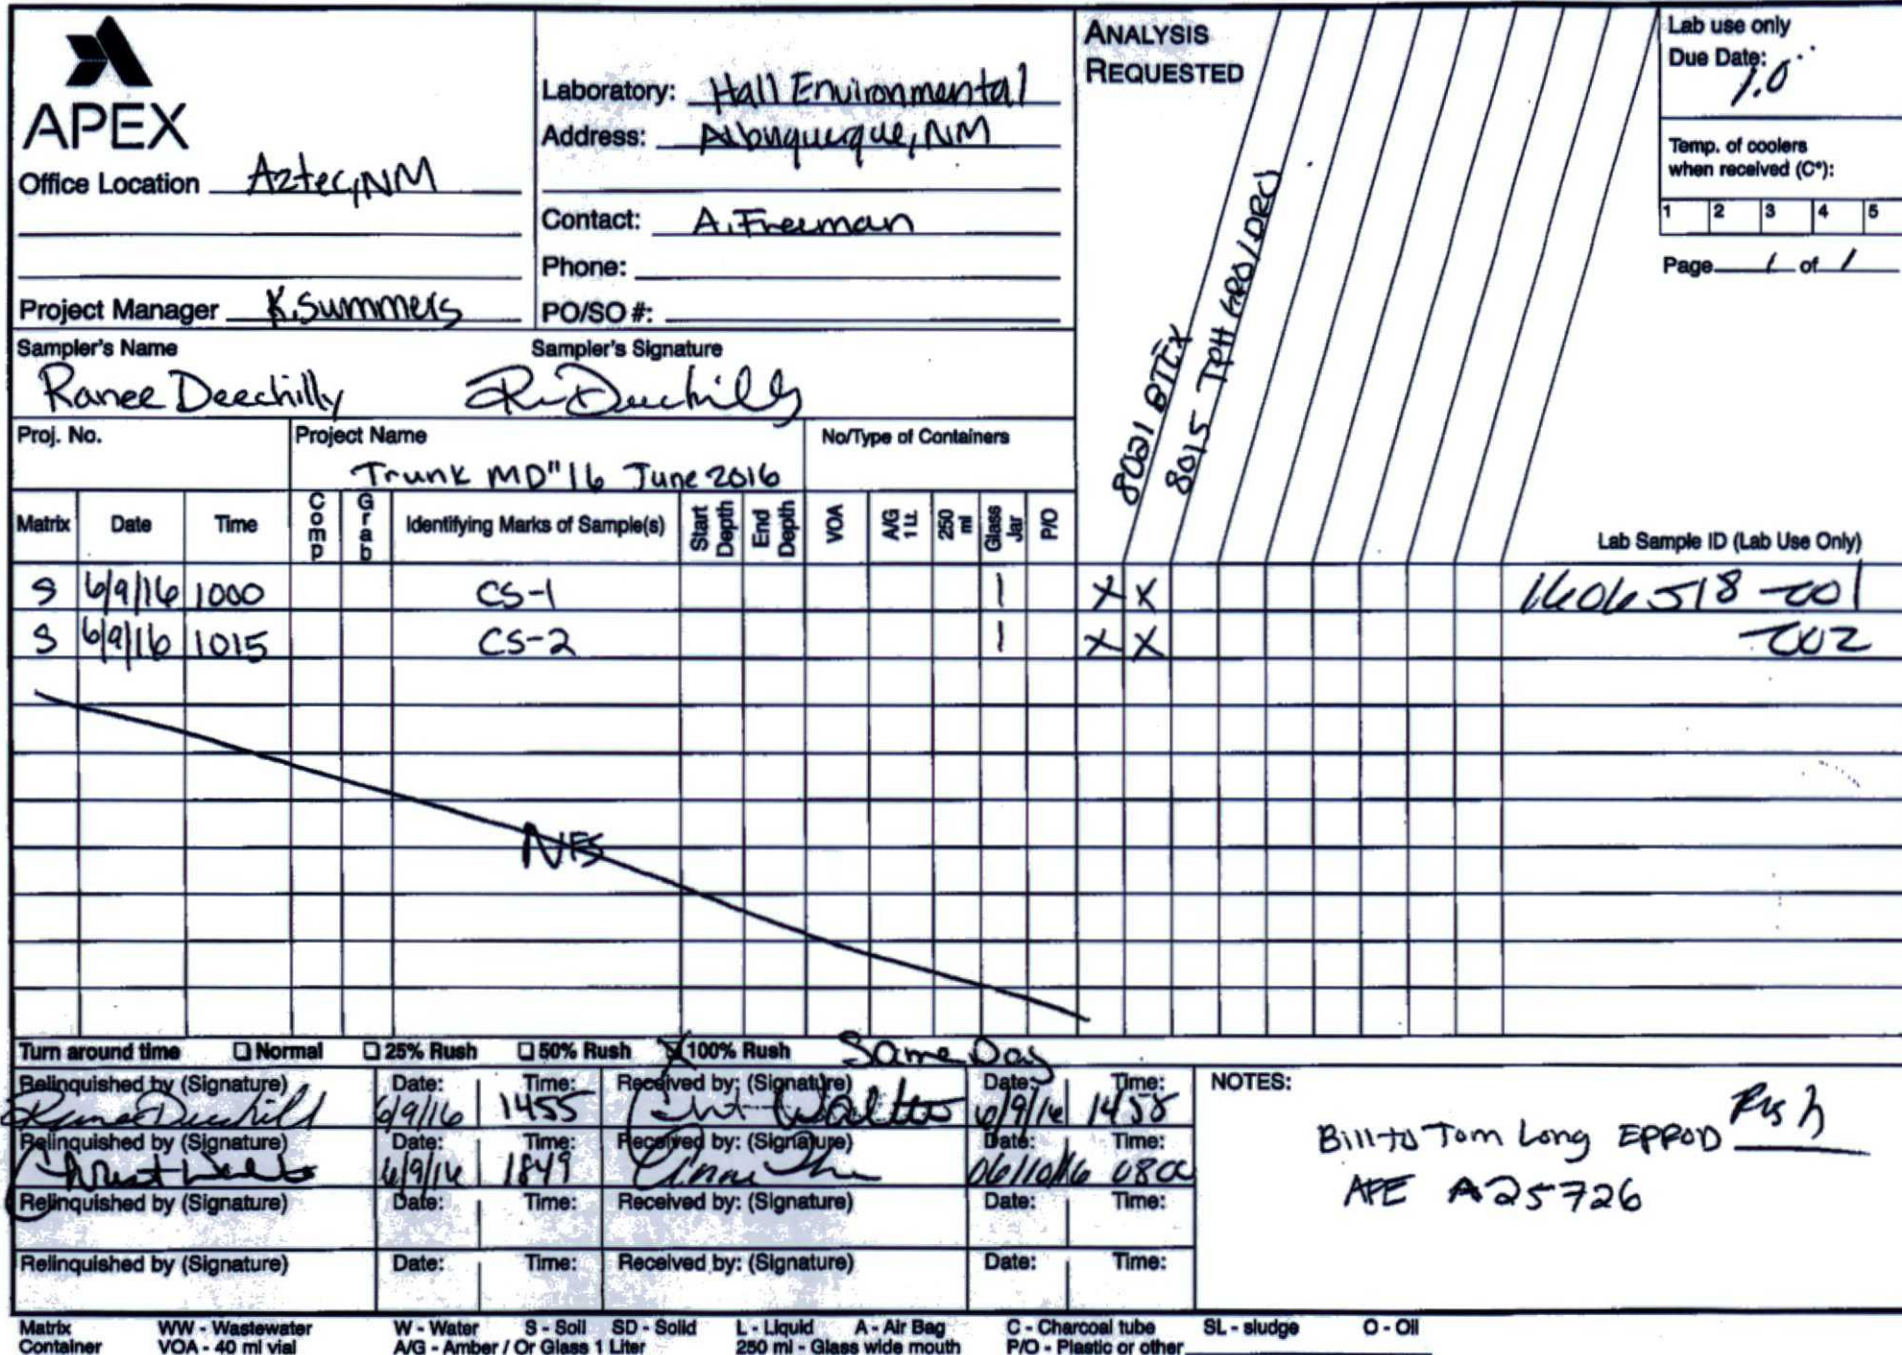 APEX
Office Location Aztec, NM
Project Manager K. Summers
Laboratory: Hall Environmental
Address: Albuquerque, NM
Contact: A. Freeman
Phone:
PO/SO #:
ANALYSIS
REQUESTED
8021 BTEX
8015 TPH (GRO/DRO)
Lab use only
Due Date:
1.0
Temp. of coolers
when received (C°):
1 2 3 4 5
Page 1 of 1
Sampler's Name Sampler's Signature
Ranee Deechilly R. Deechilly
Proj. No. Project Name No/Type of Containers
Trunk MD"16 June 2016
Matrix Date Time Comp Grab Identifying Marks of Sample(s) Start Depth End Depth VOA A/G 1 Lt. 250 ml Glass Jar P/O Lab Sample ID (Lab Use Only)
S 6/9/16 1000 CS-1 1 X X 1606518-001
S 6/9/16 1015 CS-2 1 X X -002
NFS
Turn around time Normal 25% Rush 50% Rush X 100% Rush Same Day
Relinquished by (Signature) Date: Time: Received by: (Signature) Date: Time: NOTES:
Ranee Deechilly 6/9/16 1455 6/9/16 1455
Relinquished by (Signature) Date: Time: Received by: (Signature) Date: Time:
6/9/16 1849 06/10/16 0800
Relinquished by (Signature) Date: Time: Received by: (Signature) Date: Time:
Relinquished by (Signature) Date: Time: Received by: (Signature) Date: Time:
Bill to Tom Long EPROD Rush
AFE A25726
Matrix WW - Wastewater W - Water S - Soil SD - Solid L - Liquid A - Air Bag C - Charcoal tube SL - sludge O - Oil
Container VOA - 40 ml vial A/G - Amber / Or Glass 1 Liter 250 ml - Glass wide mouth P/O - Plastic or other